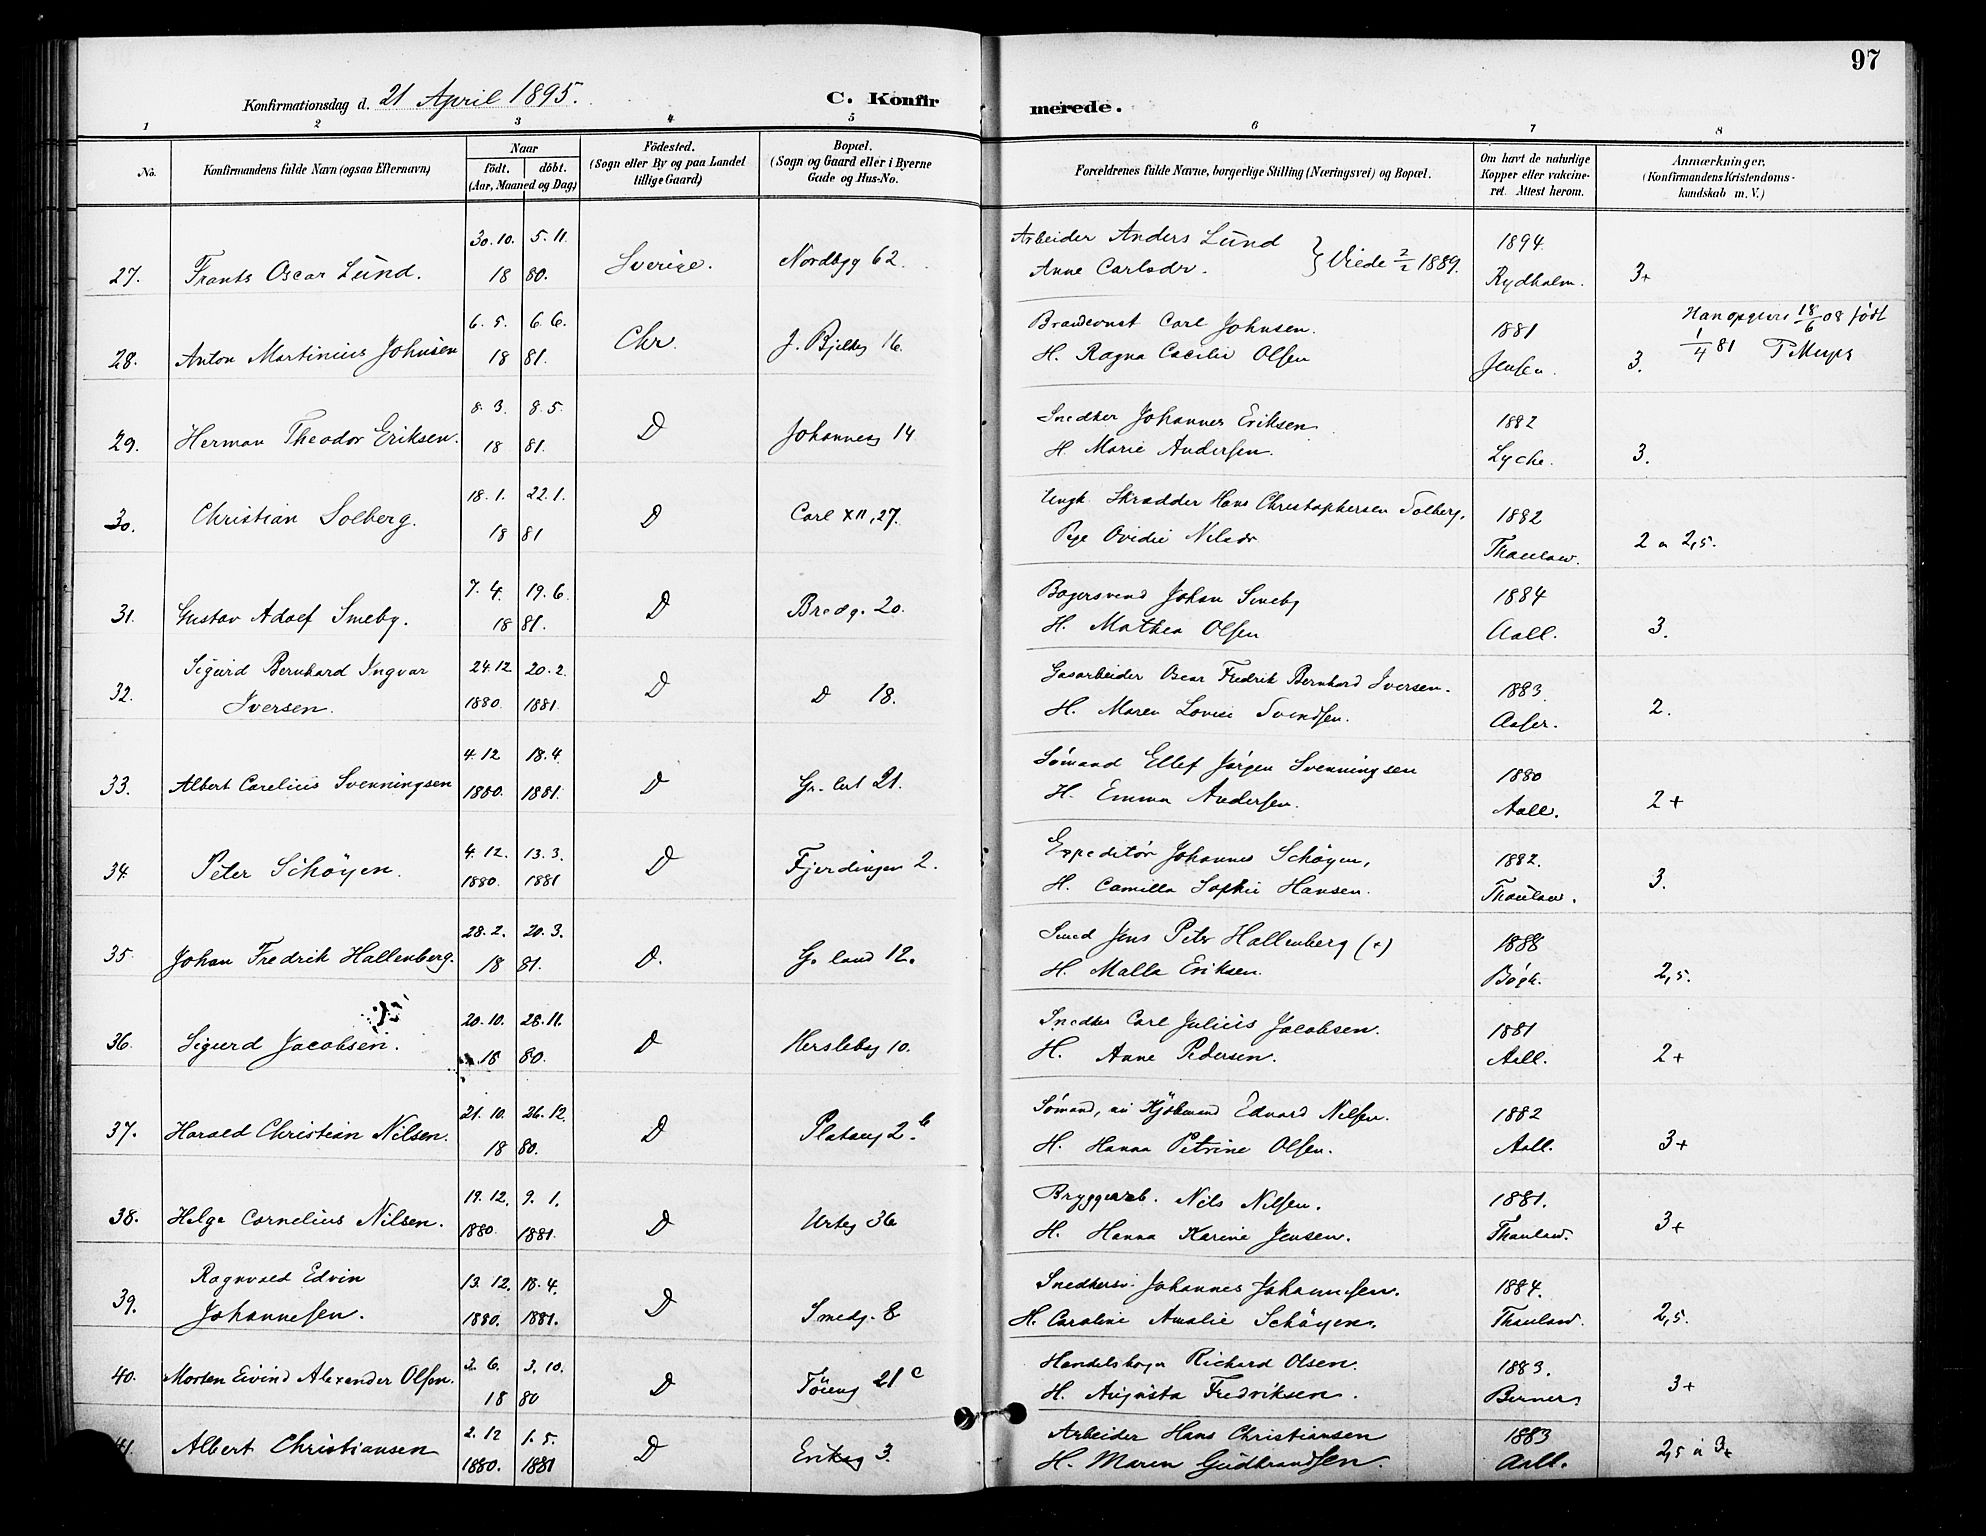 97
Konfirmationsdag d. 21 April 1895. C. Konfirmerede.
1 2 3 4 5 6 7 8
No. Konfirmandens fulde Navn (ogsaa Efternavn) Naar födt. döbt. (Aar, Maaned og Dag) Födested. (Sogn eller By og paa Landet tillige Gaard) Bopæl. (Sogn og Gaard eller i Byerne Gade og Hus-No. Forældrenes fulde Navne, borgerlige Stilling (Næringsvei) og Bopæl. Om havt de naturlige Kopper eller vaccineret. Attest herom. Anmærkninger. (Konfirmandens Kristendomskundskab m. V.)
30.10. 5.11. Arbeider Anders Lund 1894
27. Frants Oscar Lund. 18 80. Sverige. Nordbyg 62. Anne Carlsdr. } Viede 2/2 1889. Rydholm. 3+
6.5. 6.6. Carl Johnsen. 1881 Han opgives 18/6 08 født
28. Anton Martinius Johnsen 18 81. Chr. J. Bjelkes 16. H. Ragna Cecilie Olsen Jensen. 3. 1/4 81
8.3. 8.5. Snedker Johannes Eriksen 1882
29. Herman Theodor Eriksen. 18 81. D Johannesg 14 H. Marie Andersen. Lyche. 3.
18.1. 22.1. Ungk. Skrædder Hans Christophersen Solberg, 1882
30. Christian Solberg. 18 81 D Carl XII, 27. Pige Ovidie Nilsdr Thaulow. 2 a 2,5.
7.4. 19.6. Bagersvend Johan Smeby 1884
31. Gustav Adolf Smeby. 18 81. D Bredg. 20. H. Mathea Olsen Aall. 3.
Sigurd Bernhard Ingvar 24.12 20.2. Gasarbeider Oscar Fredrik Bernhard Iversen. 1883
32. Iversen. 1880. 1881. D D 18. H. Maren Lovise Svendsen. 2.
4.12 18.4. Sømand Ellef Jørgen Svenningsen 1880
33. Albert Carelius Svenningsen 1880. 1881. D 21. H. Emma Andersen. Aall. 2+
4.12. 13.3. Expeditör Johannes Schøyen, 1882.
34. Peter Schøyen. 1880. 1881 D Fjerdingen 2. H. Camilla Sophie Hansen. Thaulow. 3.
28.2. 20.3. Smed Jens Peter Hallenberg (+) 1888
35. Johan Fredrik Hallenberg. 18 81. D. Gr. land 12. H. Malla Eriksen. Bögh. 2,5.
20.10. 28.11. Snedker Carl Julius Jacobsen. 1881
36. Sigurd Jacobsen. 18 80. D Herslebsg 10. H. Anne Pedersen. Aall. 2+
21.10. 26.12. Sømand, nu Kjøbmand Edvard Nilsen. 1882
37. Harald Christian Nilsen. 18 80. D Platoug 2.b H. Hanna Petrine Olsen. Aall. 3+
19.12. 9.1. Bryggerarb. Nils Nilsen. 1881.
38. Helge Cornelius Nilsen. 1880. 1881. D Urteg 36 H. Hanna Karine Jensen. Thaulow. 3+
Ragnvald Edvin 13.12. 18.4. Snedkersv. Johannes Johannesen. 1884.
39. Johannesen. 1880. 1881. D Smedg. 8 H. Caroline Amalie Schøyen. Thaulow. 2,5.
3.10. Richard Olsen. 1883.
40. Morten Eivind Alexander Olsen. 18 80 D Töieng 21c H. Augusta Fredriksen. Berner. 3+
2.12 1.5. Arbeider Hans Christiansen 1883
41. Albert Christiansen 1880. 1881 D Eriksg 3. H. Maren Gudbrandsen. Aall. 2,5 a 3+